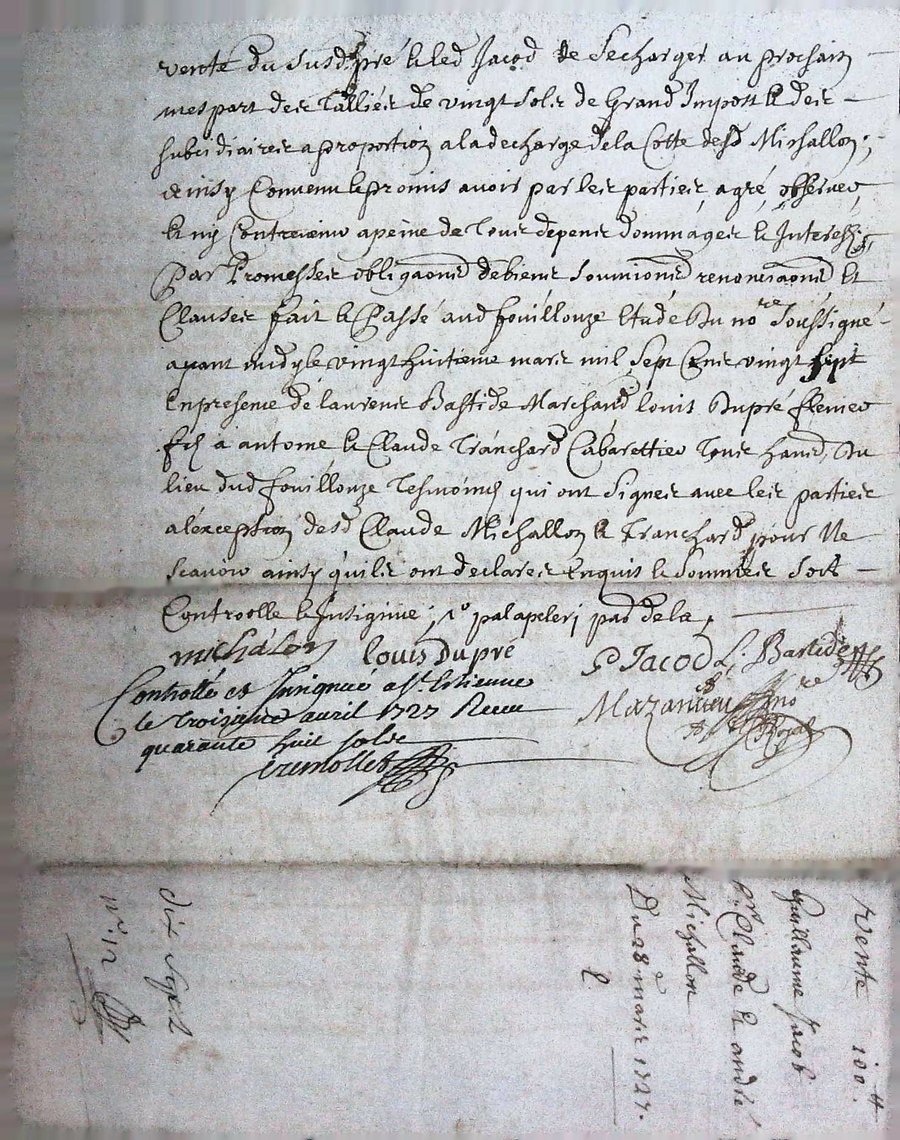 vente du susd. pré & led Jacod de se charger au prochain
mespart des Tallies de vingt sols de Grand Impost & des
subsidiaires a proportion a la decharge de la Cotte desd Michallon;
ainsy Convenu & promis avoir par les parties, agré, observer,
& ny Contrevenir a peine de tous depens dommages & Interests,
Par Promesses obligaons de biens soumions renonciaons et
Clauses fait & Passé aud fouillouze Etude du nore soussigné
avant midy le vingt huitieme mars mil sept Cens vingt sept
En presence de laurens Bastide Marchand louis Dupré
fils a antoine & Claude Tranchard Cabarettier tous habd, du
lieu dud fouillouze Tesmoins qui ont signes avec les parties
a l'exception desd Claude Michallon & Tranchard pour Ne
scavoir ainsy qu'ils ont declares Enquis & sommes soit
Controolle & Insignué;
michalon louis Dupré G Jacod L. Bastide
Controllé et Insignué a St. Etienne
le troisieme avril 1727 Receu
quarante huit sols
nore Royal
Vente 100 tt
Guillaume Jacod
Claude & andré
Michallon
Du 28e mars 1727.
dix sept
no. 12